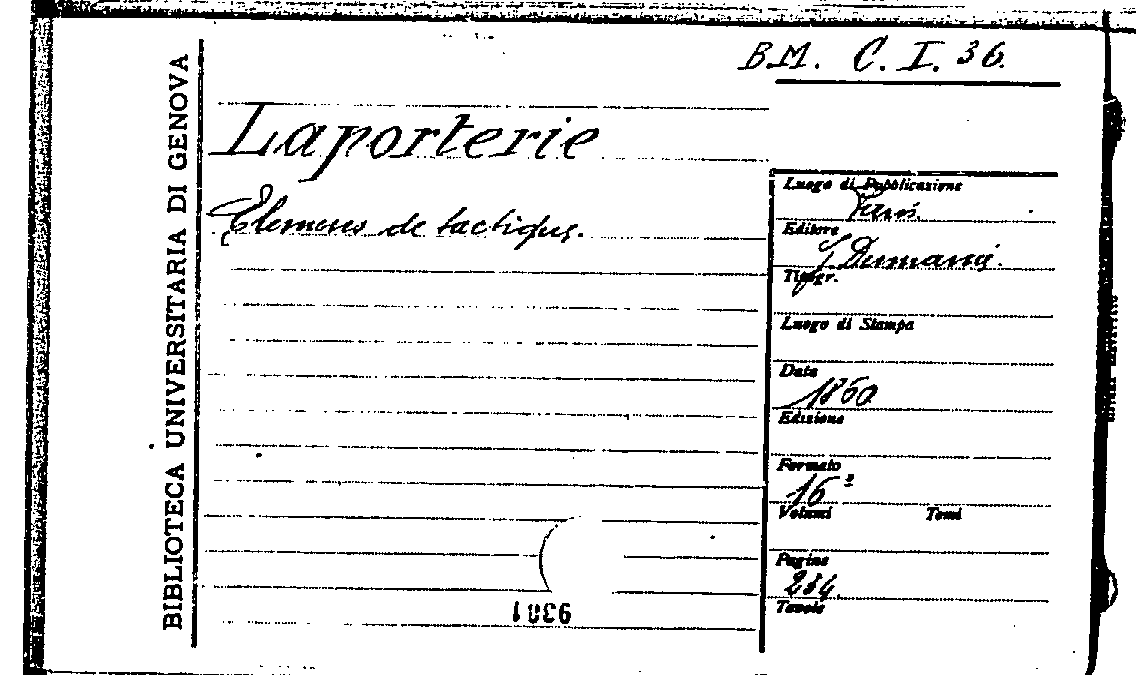 B.M. C. I. 36.
BIBLIOTECA UNIVERSITARIA DI GENOVA
Laporterie
Elemens de tactique.
Luogo di Pubblicazione
Paris
Editore
J. Dumaine.
Tipogr.
Luogo di Stampa
Data
1860
Edizione
Formato
16º
Volumi Tomi
Pagine
234.
Tavole